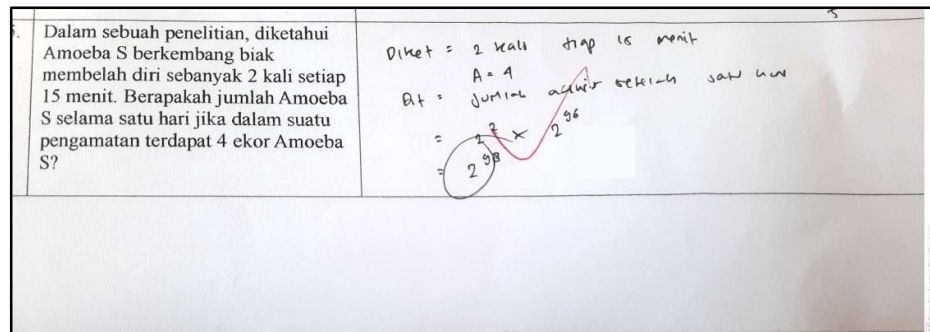 Dalam sebuah penelitian, diketahui
Amoeba S berkembang biak
membelah diri sebanyak 2 kali setiap
15 menit. Berapakah jumlah Amoeba
S selama satu hari jika dalam suatu
pengamatan terdapat 4 ekor Amoeba
S?
Diket = 2 kali tiap 15 menit
A = 4
At = jumlah setelah satu hari
= 2² × 2⁹⁶
= 2⁹⁸